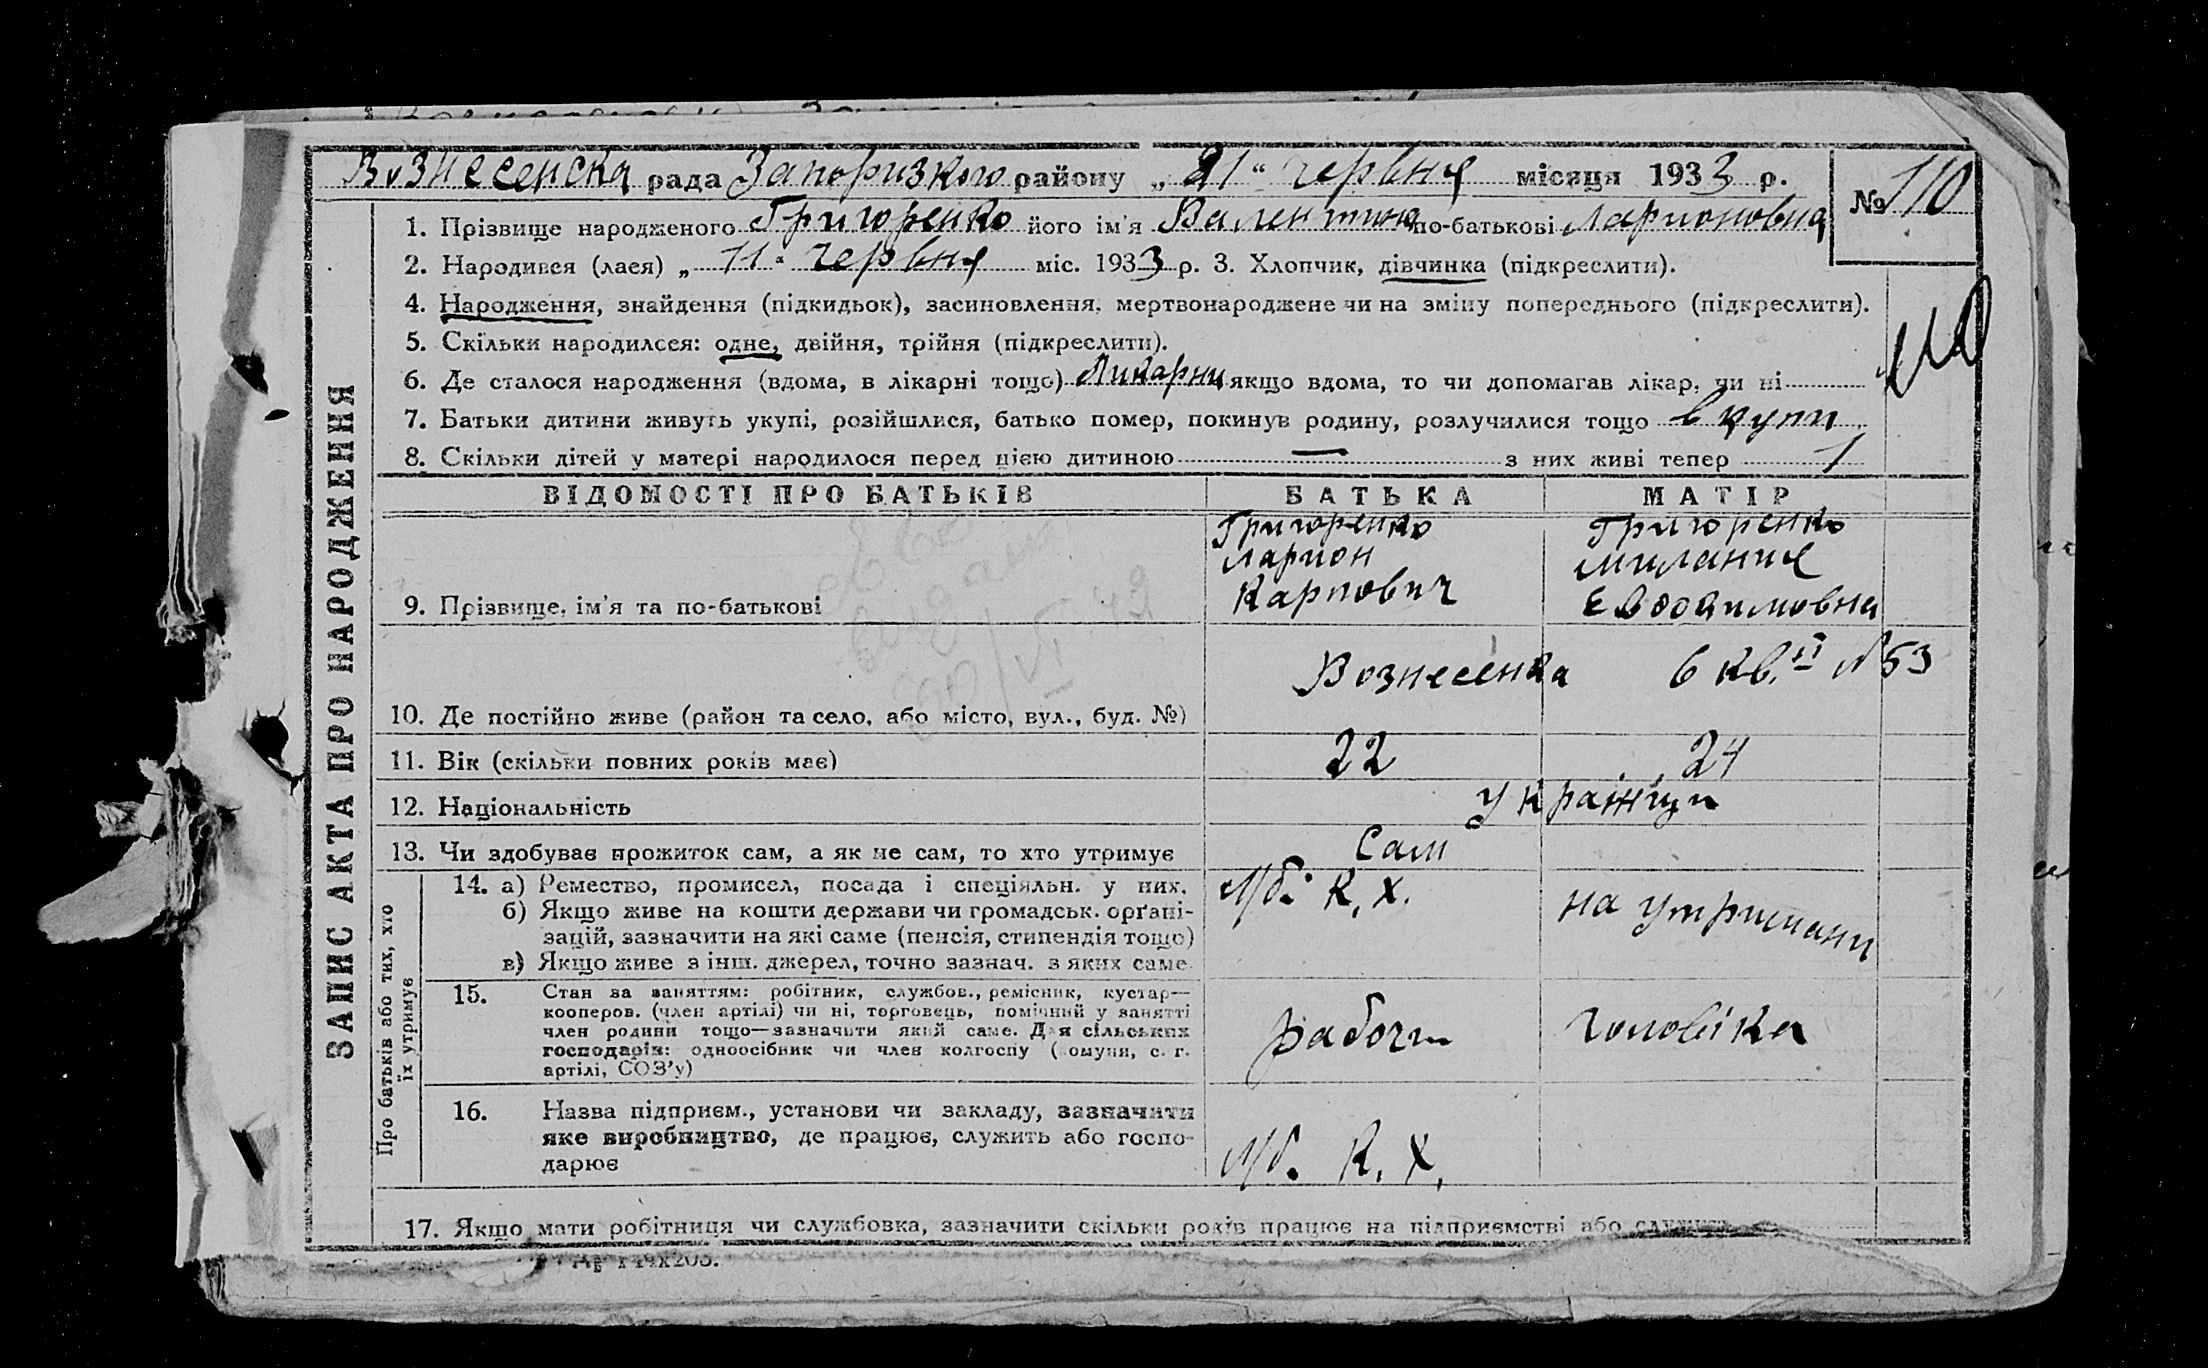 Вознесенска рада Запоризкого району „21“ червня місяця 1933 р.
№ 110
1. Прізвище народженого Григоренко його ім'я Валентина по-батькові Ларионовна
2. Народився (лася) „11“ червня міс. 1933 р. 3. Хлопчик, дівчинка (підкреслити).
4. Народження, знайдення (підкидьок), засиновлення, мертвонароджене чи на зміну попереднього (підкреслити).
5. Скільки народилося: одне, двійня, трійня (підкреслити).
6. Де сталося народження (вдома, в лікарні тощо) Ликарни якщо вдома, то чи допомагав лікар, чи ні
7. Батьки дитини живуть укупі, розійшлися, батько помер, покинув родину, розлучилися тощо вкупи
8. Скільки дітей у матері народилося перед цією дитиною — з них живі тепер 1
ЗАПИС АКТА ПРО НАРОДЖЕННЯ
ВІДОМОСТІ ПРО БАТЬКІВ БАТЬКА МАТІР
Григоренко Григоренко
Ларион Милания
9. Прізвище, ім'я та по-батькові Карпович Евдокимовна
Вознесенка 6 кв. № 53
10. Де постійно живе (район та село, або місто, вул., буд. №)
11. Вік (скільки повних років має) 22 24
12. Національність Українци
13. Чи здобуває прожиток сам, а як не сам, то хто утримує Сам
Про батьків або тих, хто їх утримує
14. а) Ремество, промисел, посада і спеціяльн. у них. К. Х. на утримани
б) Якщо живе на кошти держави чи громадськ. орґані-
зацій, зазначити на які саме (пенсія, стипендія тощо)
в) Якщо живе з інш. джерел, точно зазнач. з яких саме
15. Стан за заняттям: робітник, службов., ремісник, кустар—
кооперов. (член артілі) чи ні, торговець, помічний у занятті
член родини тощо—зазначити який саме. Для сільських
господарів: одноосібник чи член колгоспу (комуни, с. г.
артілі, СОЗ'у)
рабочи чоловіка
16. Назва підприєм., установи чи закладу, зазначити
яке виробництво, де працює, служить або госпо-
дарює
К. Х.
17. Якщо мати робітниця чи службовка, зазначити скільки років працює на підприємстві або служить